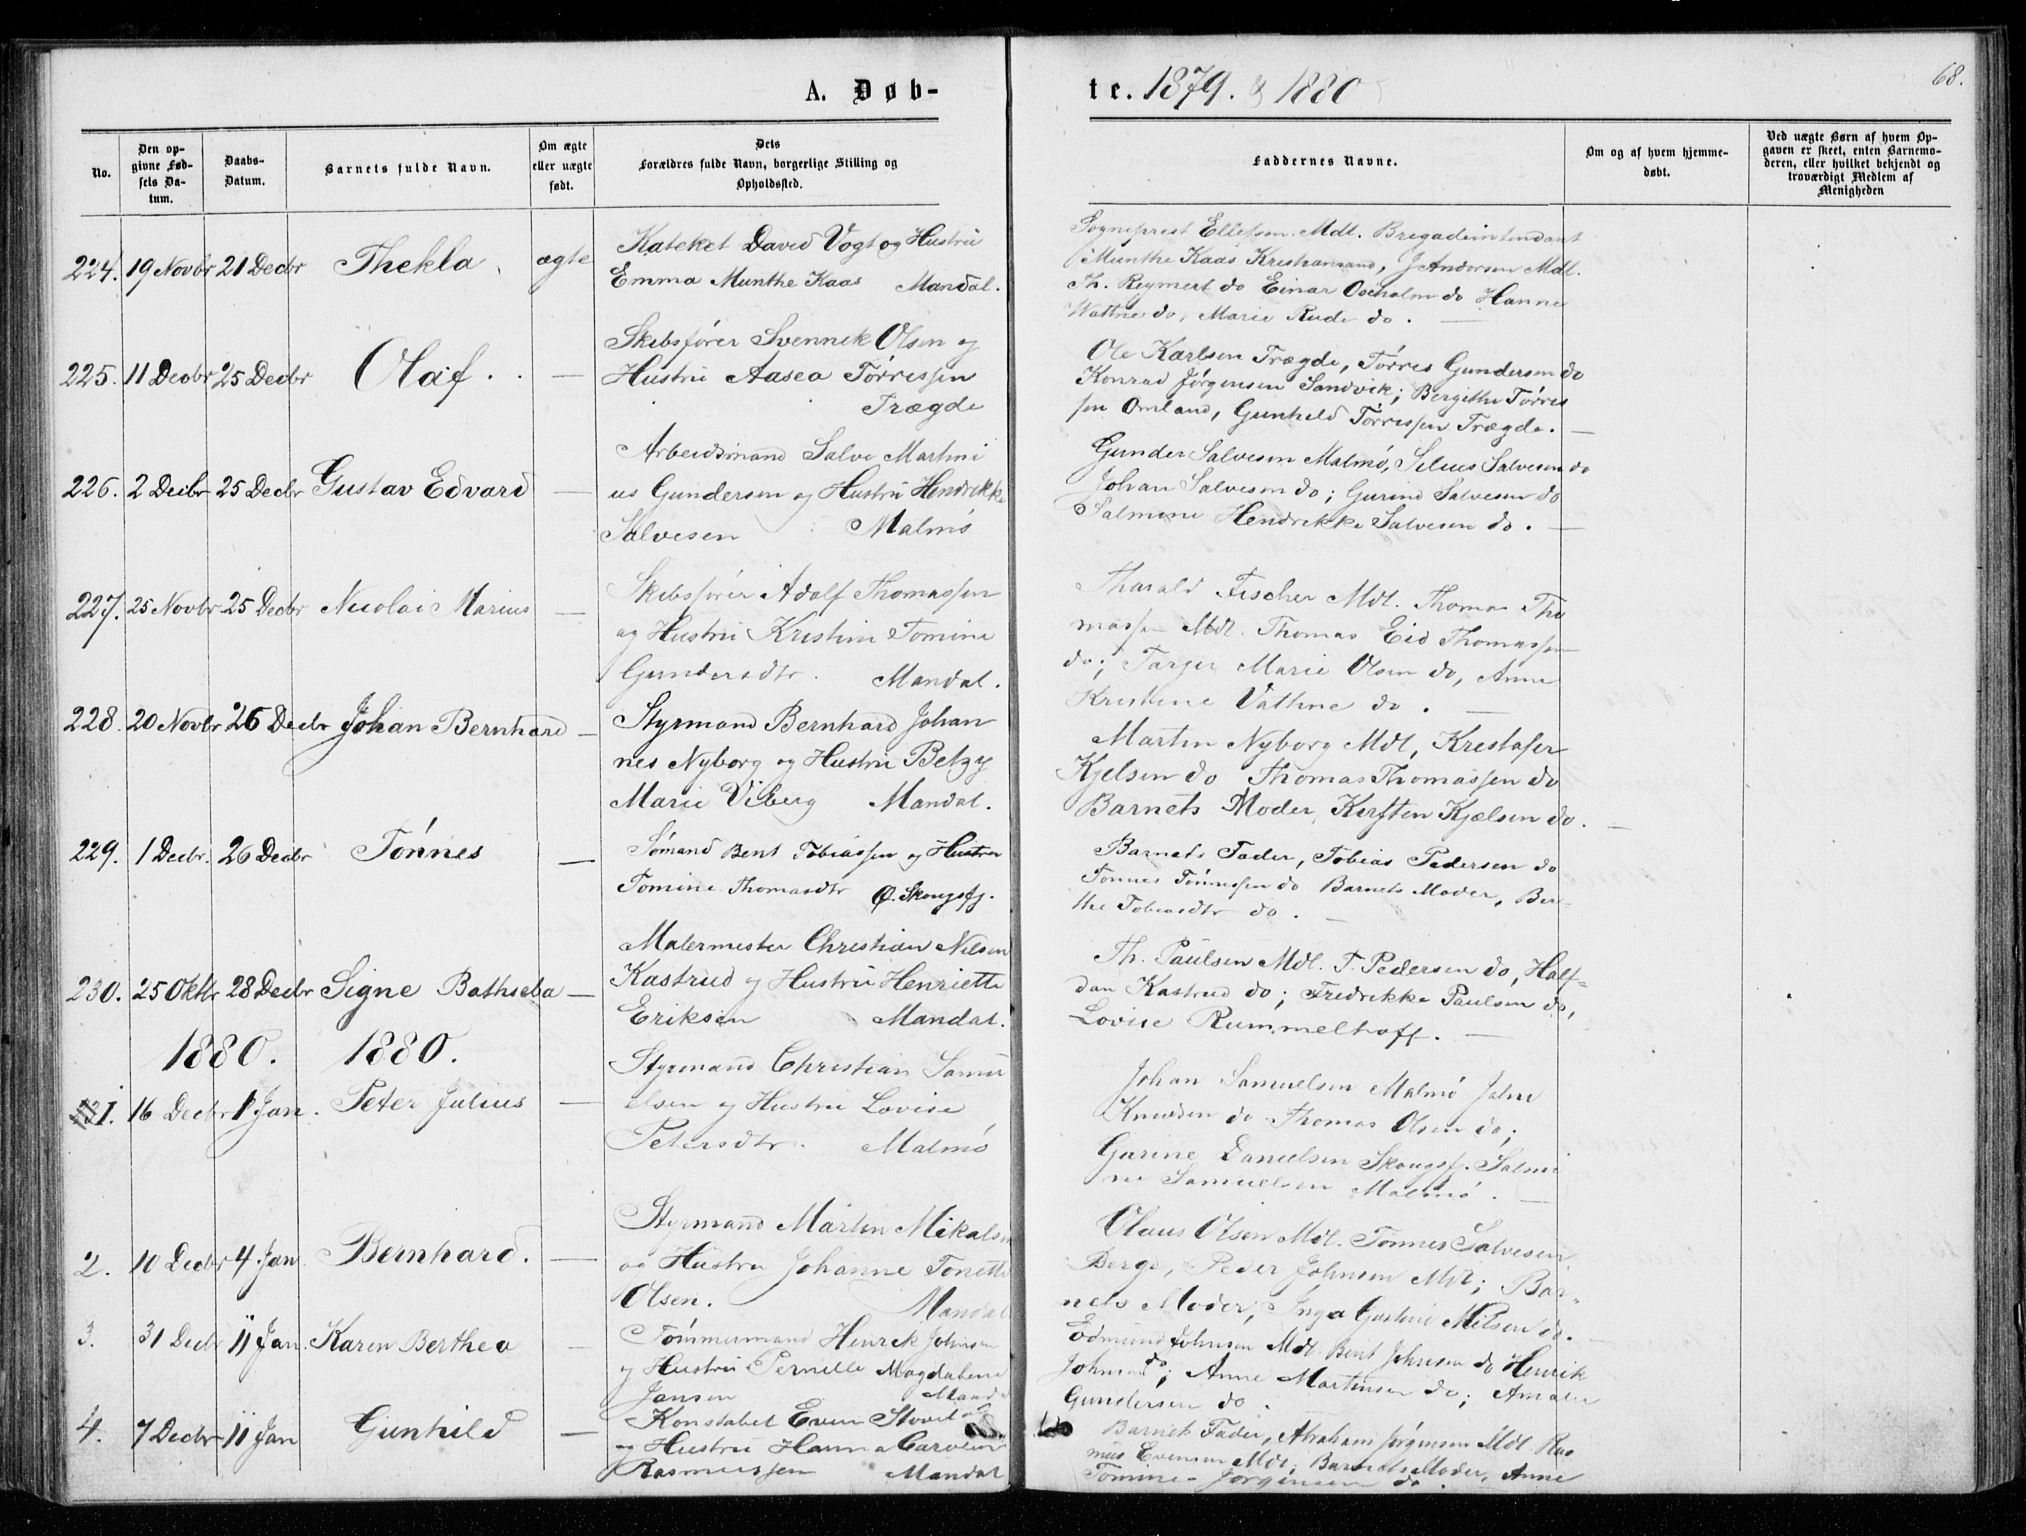 A. Døb-
te. 1879. & 1880
68.
No.
Den op-
givne Fød-
sels Da-
tum.
Daabs-
Datum.
Barnets fulde Navn.
Om ægte
eller uægte
født.
Dets
Forældres fulde Navn, borgerlige Stilling og
Opholdssted.
Faddernes Navne.
Om og af hvem hjemme-
døbt.
Ved uægte Børn af hvem Op-
gaven er skeet, enten Barnemo-
deren, eller hvilket bekjendt og
troværdigt Medlem af
Menigheden
224. 19 Novbr 21 Decbr Thekla. ægte
Kateket David Vogt og Hustru
Emma Munthe Kaas Mandal.
Sogneprest Ellefsen Mdl. Brigadeintendant
Munthe Kaas Kristiansand, J Andersen Mdl.
Th. Reymert do Einar do Hanne
Wattne do, Marie Rude do. —
225. 11 Decbr 25 Decbr Olaf. —
Skibsfører Svennik Olsen og
Hustru Aasea Tørressen
Trægde
Ole Karlsen Trægde, Tørres Gundersen do
Konrad Jørgensen Sandvik; Bergithe Tørres
sen Omland, Gunhild Tørressen Trægde. —
226. 2 Decbr 25 Decbr Gustav Edvard —
Arbeidsmand Salve Martini
us Gundersen og Hustru Hendrikke
Salvesen Malmø
Gunder Salvesen Malmø, Silius Salvesen do
Johan Salvesen do; Gurine Salvesen do
Salmine Hendrikke Salvesen do. —
227. 25 Novbr 25 Decbr Nicolai Marius —
Skibsfører Adolf Thomassen
og Hustru Kristine Tomine
Gundersdtr. Mandal.
Tharald Fischer Mdl. Thomas Tho
massen Mdl. Thomas Eid Thomassen
do; Tarjer Marie Olsen do, Anne
Kristine Vathne do. —
228. 20 Novbr 26 Decbr Johan Bernhard —
Styrmand Bernhard Johan
nes Nyborg og Hustru Betzy
Marie Viberg Mandal.
Martin Nyborg Mdl, Kristofer
Kjelsen do Thomas Thomassen do
Barnets Moder, Kirsten Kjælsen do. —
229. 1 Decbr. 26 Decbr Tønnes —
Sømand Bent Tobiassen og Hustru
Tomine Thomasdtr Ø. Skougsfj.
Barnets Fader, Tobias Pedersen do
Tønnes Tønnessen do Barnets Moder, Ber-
the Tobiasdtr do. —
230. 25 Oktbr 28 Decbr Signe Bathseba —
Malermester Christian Nilsen
Kastrud og Hustru Henriette
Eriksen Mandal.
Th. Paulsen Mdl. T. Pedersen do, Half-
dan Kastrud do; Fredrikke Paulsen do,
Lovise Rummelhoff. —
1880. 1880.
1. 16 Decbr 1 Jan. Peter Julius —
Styrmand Christian Samu
elsen og Hustru Lovise
Petersdtr. Malmø
Johan Samuelsen Malmø John
Knudsen do Thomas Olsen do;
Gurine Danielsen Skougsfj. Salmi
ne Samuelsen Malmø. —
2. 10 Decbr 4 Jan Bernhard. —
Styrmand Martin Mikalsen
og Hustru Johanne Tonette
Olsen. Mandal
Olaus Olsen Mdl. Tønnes Salvesen
Berge, Peder Johnsen Mdl; Bar-
nets Moder, Inga Gustine Nilsen do. —
3. 31 Decbr 11 Jan. Karen Berthea —
Tømmermand Henrik Johnsen
og Hustru Pernille Magdalene
Jansen Mandal
Edmund Johnsen Mdl. Bent Johnsen do Henrik
Johnsen do; Anne Martinsen do; Amalie
Gundersen do.
4. 7 Decbr 11 Jan Gunhild —
Konstabel Even
og Hustru Hanna Caroline
Rasmussen Mandal
Barnets Fader, Abraham Jørgensen Mdl Ras
mus Evensen Mdl; Barnets Moder, Anne
Tomine Jørgensen do.